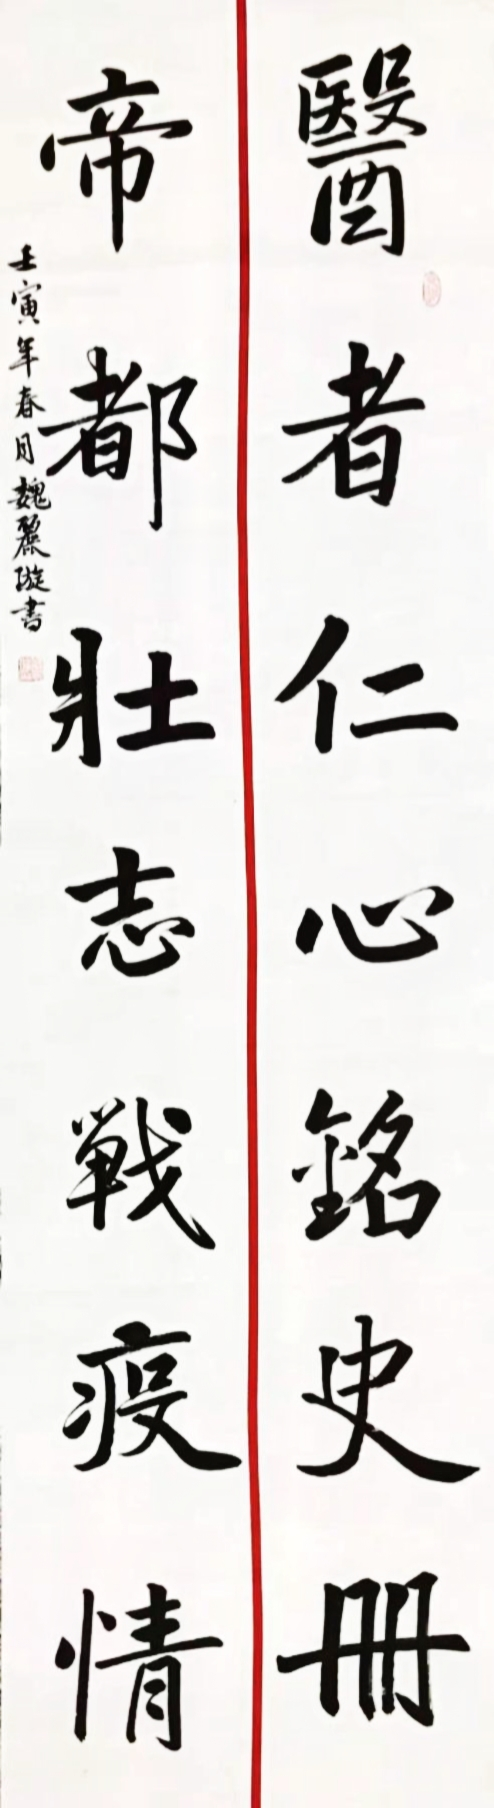 醫者仁心銘史冊
帝都壯志戰疫情
壬寅年春月魏麗漩書